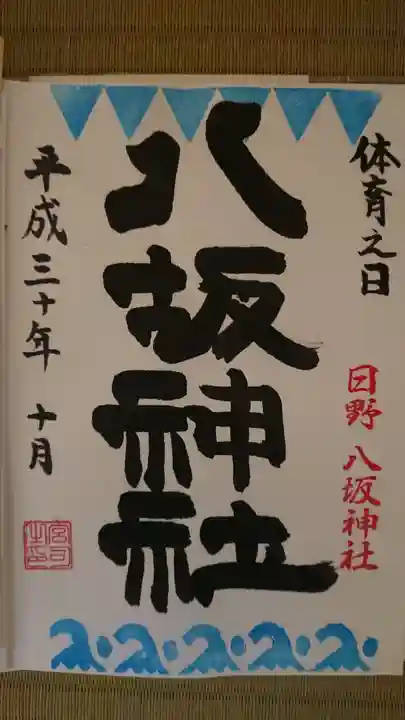 体育之日
日野 八坂神社
八坂神社
平成三十年 十月
宮司之印